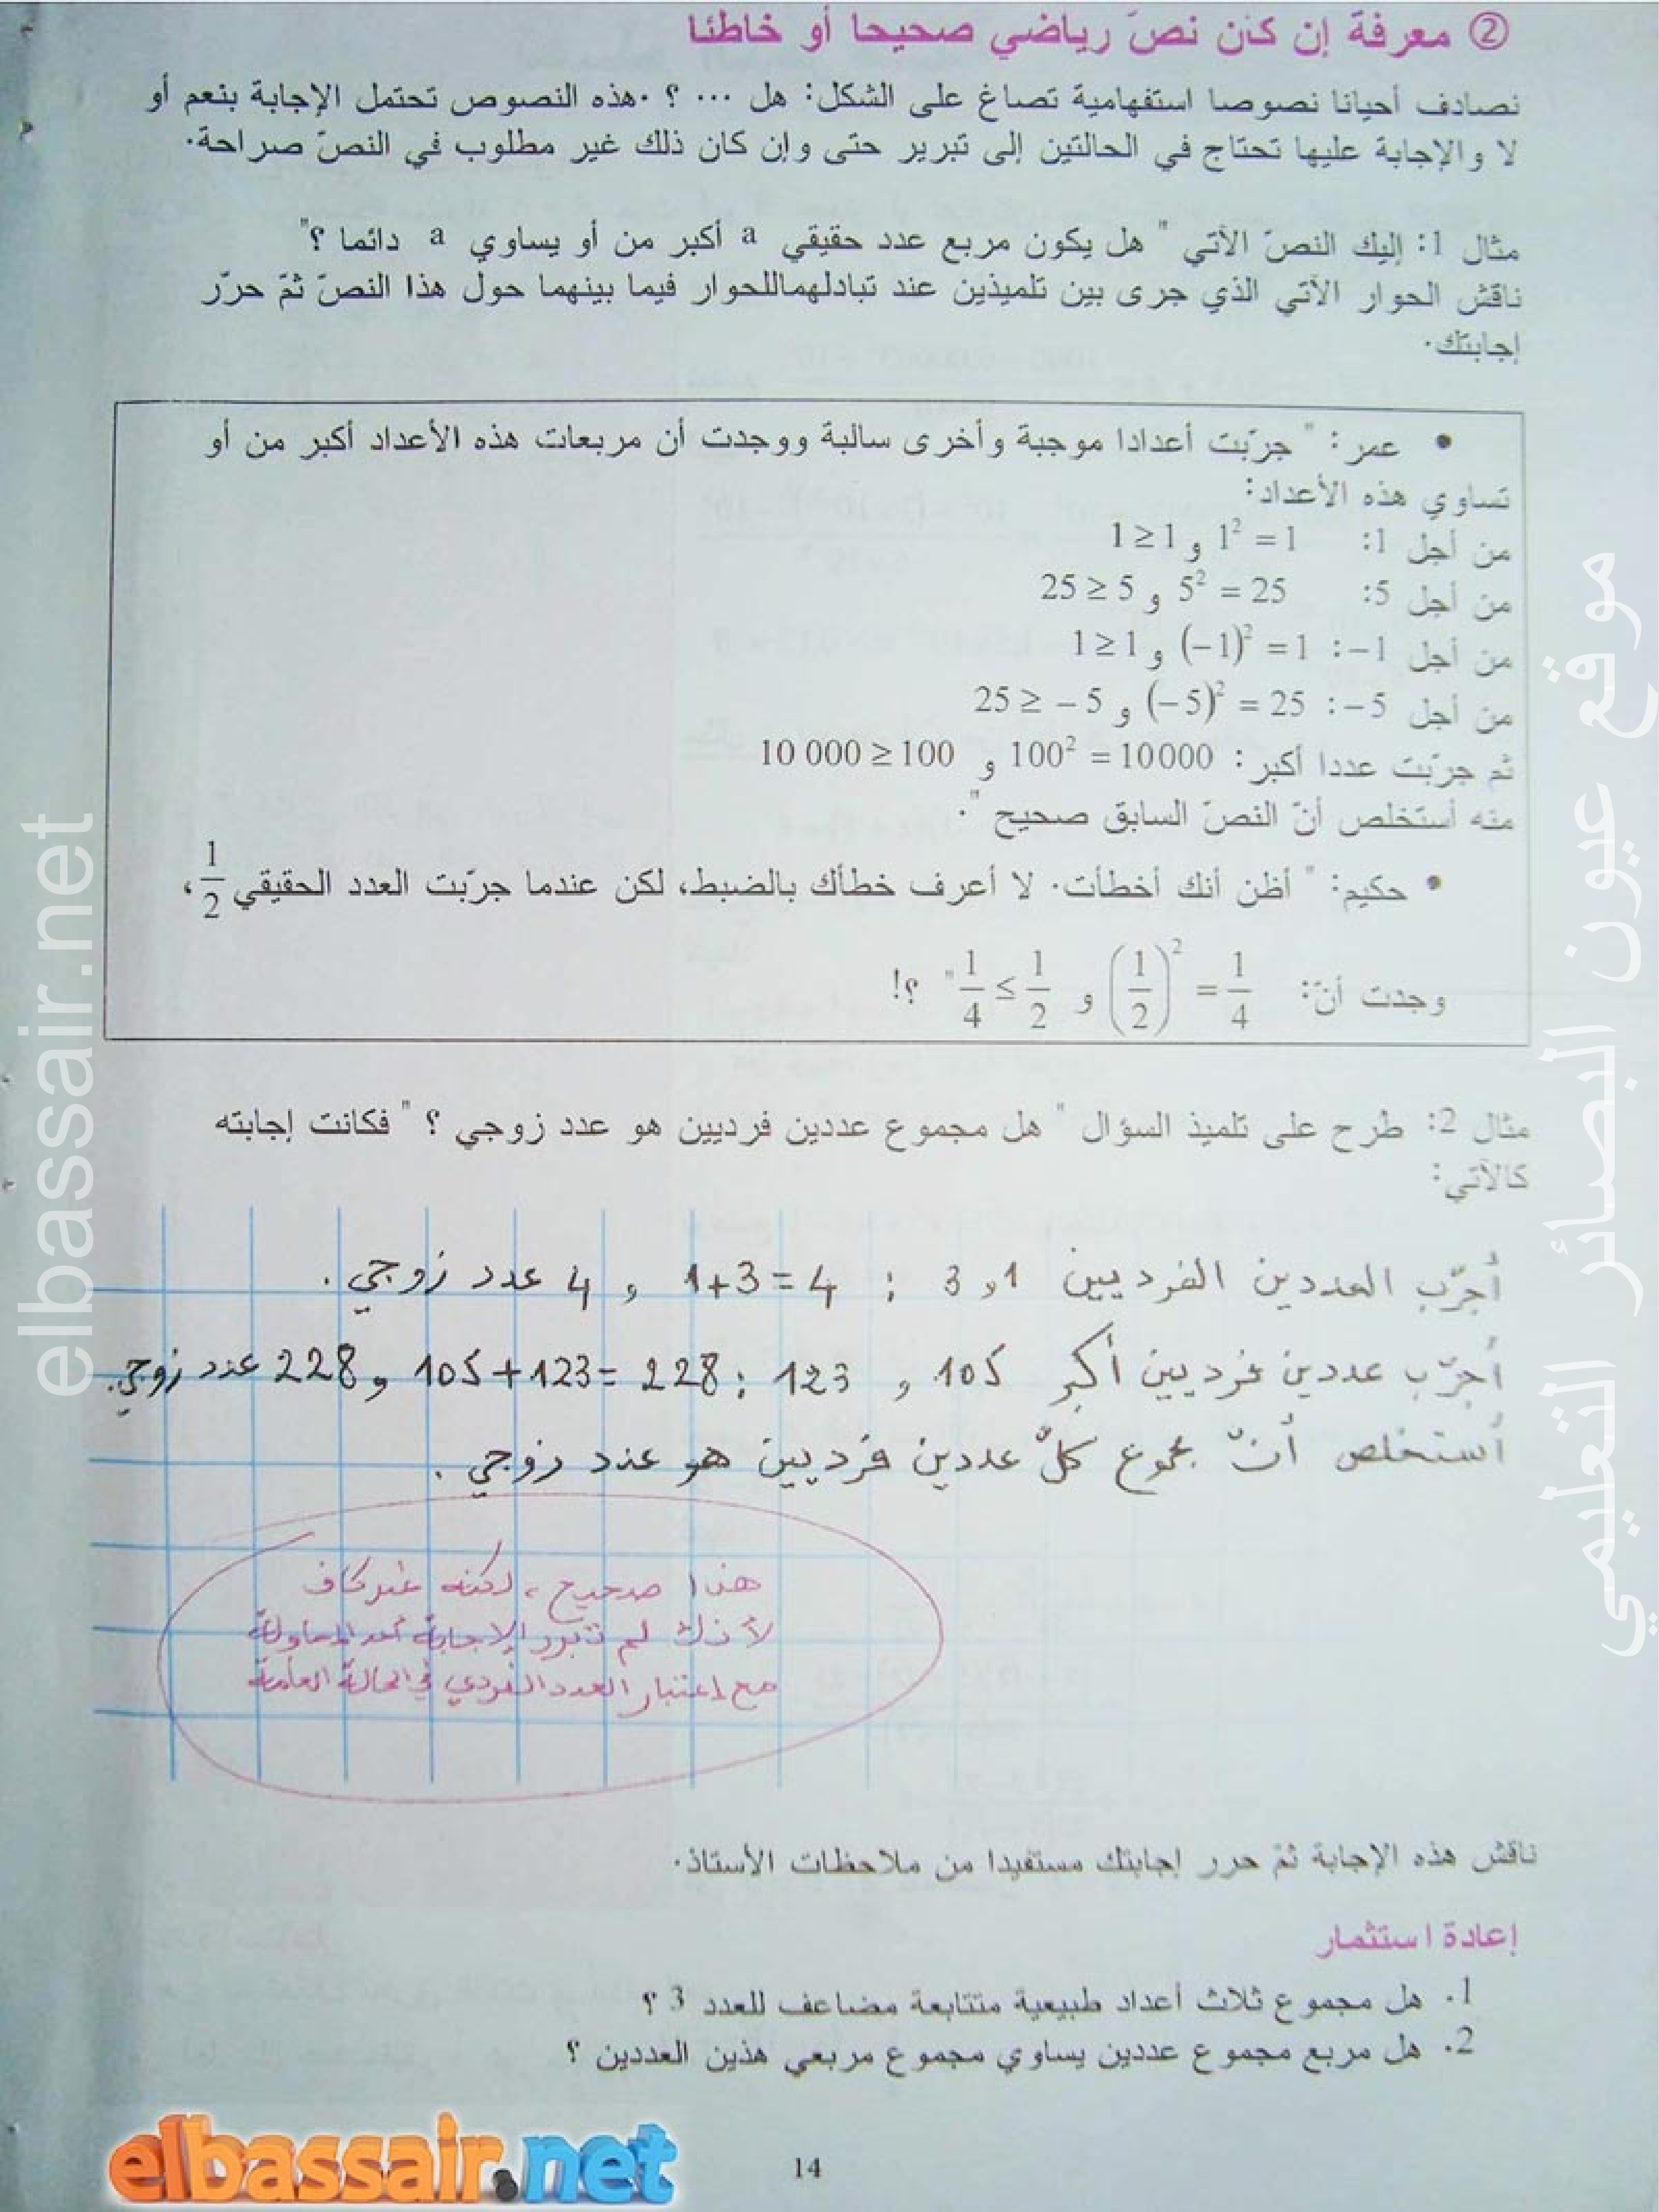 ② معرفة إن كان نصّ رياضي صحيحا أو خاطئا
نصادف أحيانا نصوصا استفهامية تصاغ على الشكل: هل ... ؟ .هذه النصوص تحتمل الإجابة بنعم أو
لا والإجابة عليها تحتاج في الحالتين إلى تبرير حتى وإن كان ذلك غير مطلوب في النصّ صراحة.
مثال 1: إليك النصّ الآتي " هل يكون مربع عدد حقيقي a أكبر من أو يساوي a دائما ؟"
ناقش الحوار الآتي الذي جرى بين تلميذين عند تبادلهماللحوار فيما بينهما حول هذا النصّ ثمّ حرّر
إجابتك.
• عمر: " جرّبت أعدادا موجبة وأخرى سالبة ووجدت أن مربعات هذه الأعداد أكبر من أو
تساوي هذه الأعداد:
من أجل 1: 1² = 1 و 1 ≥ 1
من أجل 5: 5² = 25 و 25 ≥ 5
من أجل 1−: (−1)² = 1 و 1 ≥ 1
من أجل 5−: (−5)² = 25 و 25 ≥ −5
ثم جرّبت عددا أكبر: 100² = 10000 و 10 000 ≥ 100
منه أستخلص أنّ النصّ السابق صحيح ".
• حكيم: " أظن أنك أخطأت. لا أعرف خطأك بالضبط، لكن عندما جرّبت العدد الحقيقي 1/2،
وجدت أنّ: (1/2)² = 1/4 و 1/4 ≤ 1/2 " ؟!
مثال 2: طرح على تلميذ السؤال " هل مجموع عددين فرديين هو عدد زوجي ؟ " فكانت إجابته
كالآتي:
أجرّب العددين الفرديين 1 و 3 : 1+3=4 و 4 عدد زوجي .
أجرّب عددين فرديين أكبر 105 و 123 : 105+123=228 و 228 عدد زوجي.
أستخلص أنّ مجموع كلّ عددين فرديين هو عدد زوجي .
هذا صحيح ، لكنه غير كاف
لأنك لم تبرر الإجابة أعد المحاولة
مع اعتبار العدد الفردي في الحالة العامة
ناقش هذه الإجابة ثمّ حرر إجابتك مستفيدا من ملاحظات الأستاذ.
إعادة استثمار
1. هل مجموع ثلاث أعداد طبيعية متتابعة مضاعف للعدد 3 ؟
2. هل مربع مجموع عددين يساوي مجموع مربعي هذين العددين ؟
14
elbassair.net
elbassair.net
موقع عيون البصائر التعليمي